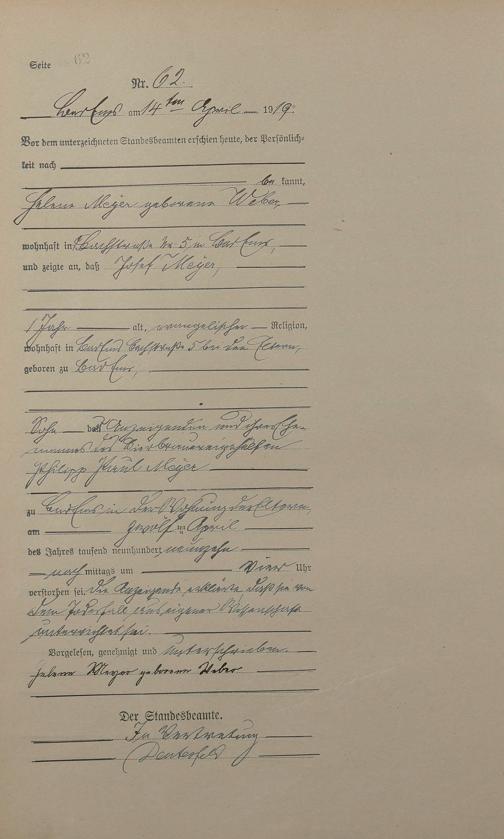 Seite 62
Nr. 62.
Bad Ems am 14ten April 1919.
Vor dem unterzeichneten Standesbeamten erschien heute, der Persönlich-
keit nach
be kannt,
Helene Meyer geborene Weber,
wohnhaft in Bachstraße Nr 5 in Bad Ems,
und zeigte an, daß Josef Meyer,
1 Jahr alt, evangelischer Religion,
wohnhaft in Bad Ems Bachstraße 5 bei den Eltern,
geboren zu Bad Ems,
Sohn der Anzeigenden und ihres Ehe-
mannes des Bierbrauereigehilfen
Philipp Paul Meyer
zu Bad Ems in der Wohnung der Eltern,
am zwölften April
des Jahres tausend neunhundert neunzehn
nach mittags um vier Uhr
verstorben sei. Die Anzeigende erklärte, daß sie von
dem Todesfall aus eigener Wissenschaft
unterrichtet sei.
Vorgelesen, genehmigt und unterschrieben.
Helene Meyer geborene Weber
Der Standesbeamte.
In Vertretung